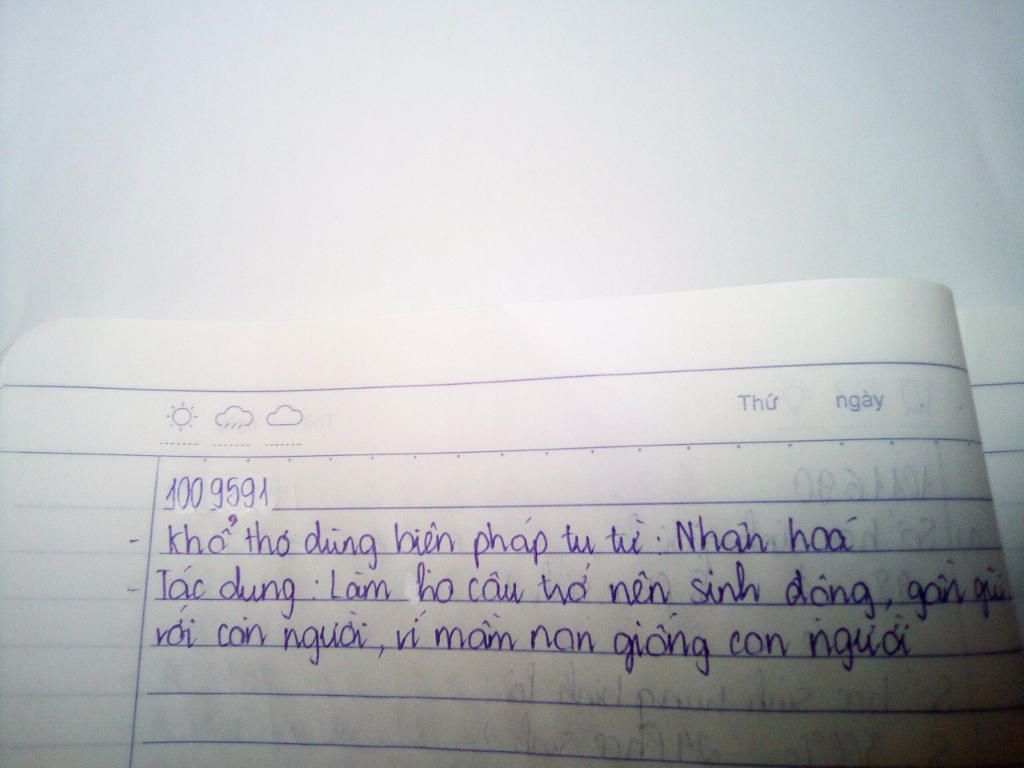 Thứ ngày
1009591
- Khổ thơ dùng biện pháp tu từ: Nhân hoá
- Tác dụng: Làm ho câu thơ nên sinh động, gần gũi
với con người, ví mầm non giống con người